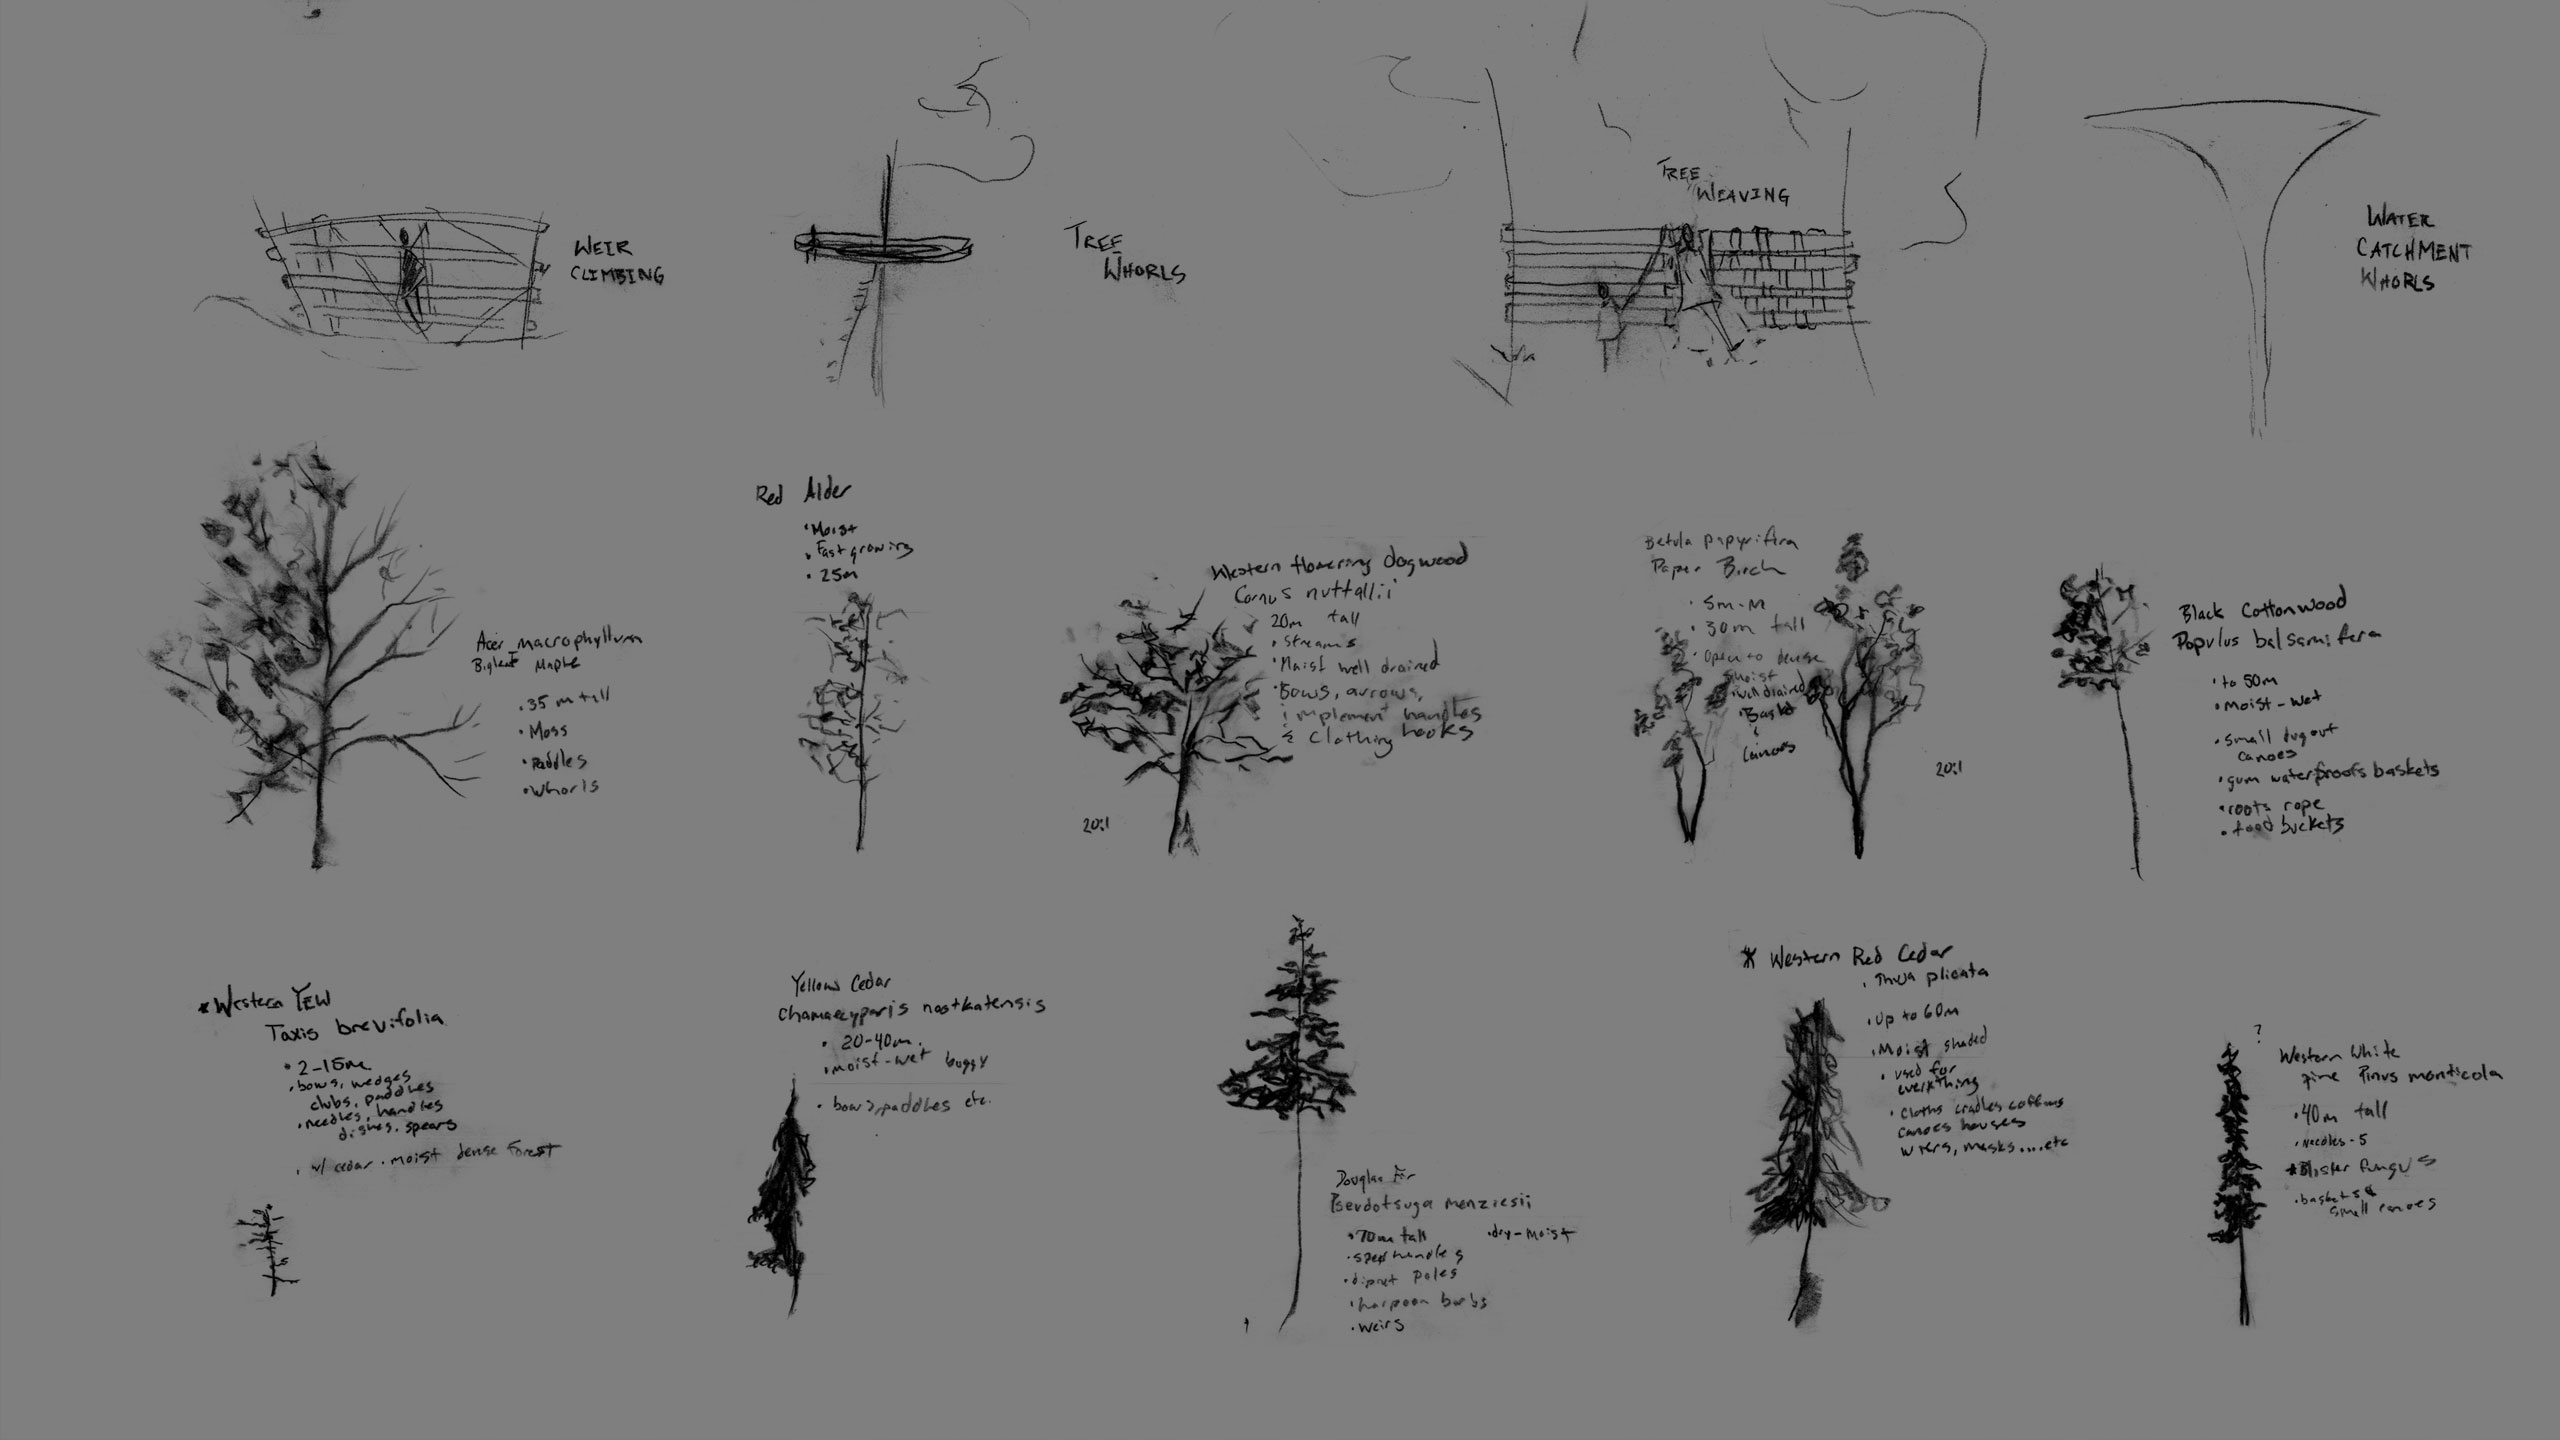 WEIR
CLIMBING
TREE
WHORLS
TREE
WEAVING
WATER
CATCHMENT
WHORLS
Acer macrophyllum
Bigleaf Maple
• 35 m tall
• Moss
• Paddles
• Whorls
Red Alder
• Moist
• Fast growing
• 25m
Western flowering dogwood
Cornus nuttallii
20m tall
• Streams
• Moist well drained
• Bows, arrows,
implement handles
& Clothing hooks
20:1
Betula papyrifera
Paper Birch
• 5m-M
• 30m tall
• Open to dense
moist
• well drained
• Baskt
&
Canoes
20:1
Black Cottonwood
Populus balsamifera
• to 50m
• Moist-wet
• small dugout
canoes
• gum waterproofs baskets
• roots rope
• food buckets
* Western YEW
Taxis brevifolia
• 2-15m
• bows, wedges
clubs, paddles
• needles, handles
dishes, spears
• w/ cedar • moist dense forest
Yellow Cedar
Chamaecyparis nootkatensis
• 20-40m.
• moist-wet boggy
• bows, paddles etc.
Douglas Fir
Pseudotsuga menziesii
• 70m tall • dry-moist
• spear handles
• dipnet poles
• harpoon barbs
• weirs
* Western Red Cedar
• Thuja plicata
• Up to 60m
• Moist shaded
• used for
everything
• Cloths cradles coffins
canoes houses
masks....etc
?
Western White
Pine Pinus monticola
• 40m tall
• Needles-5
* Blister fungus
• baskets &
small canoes